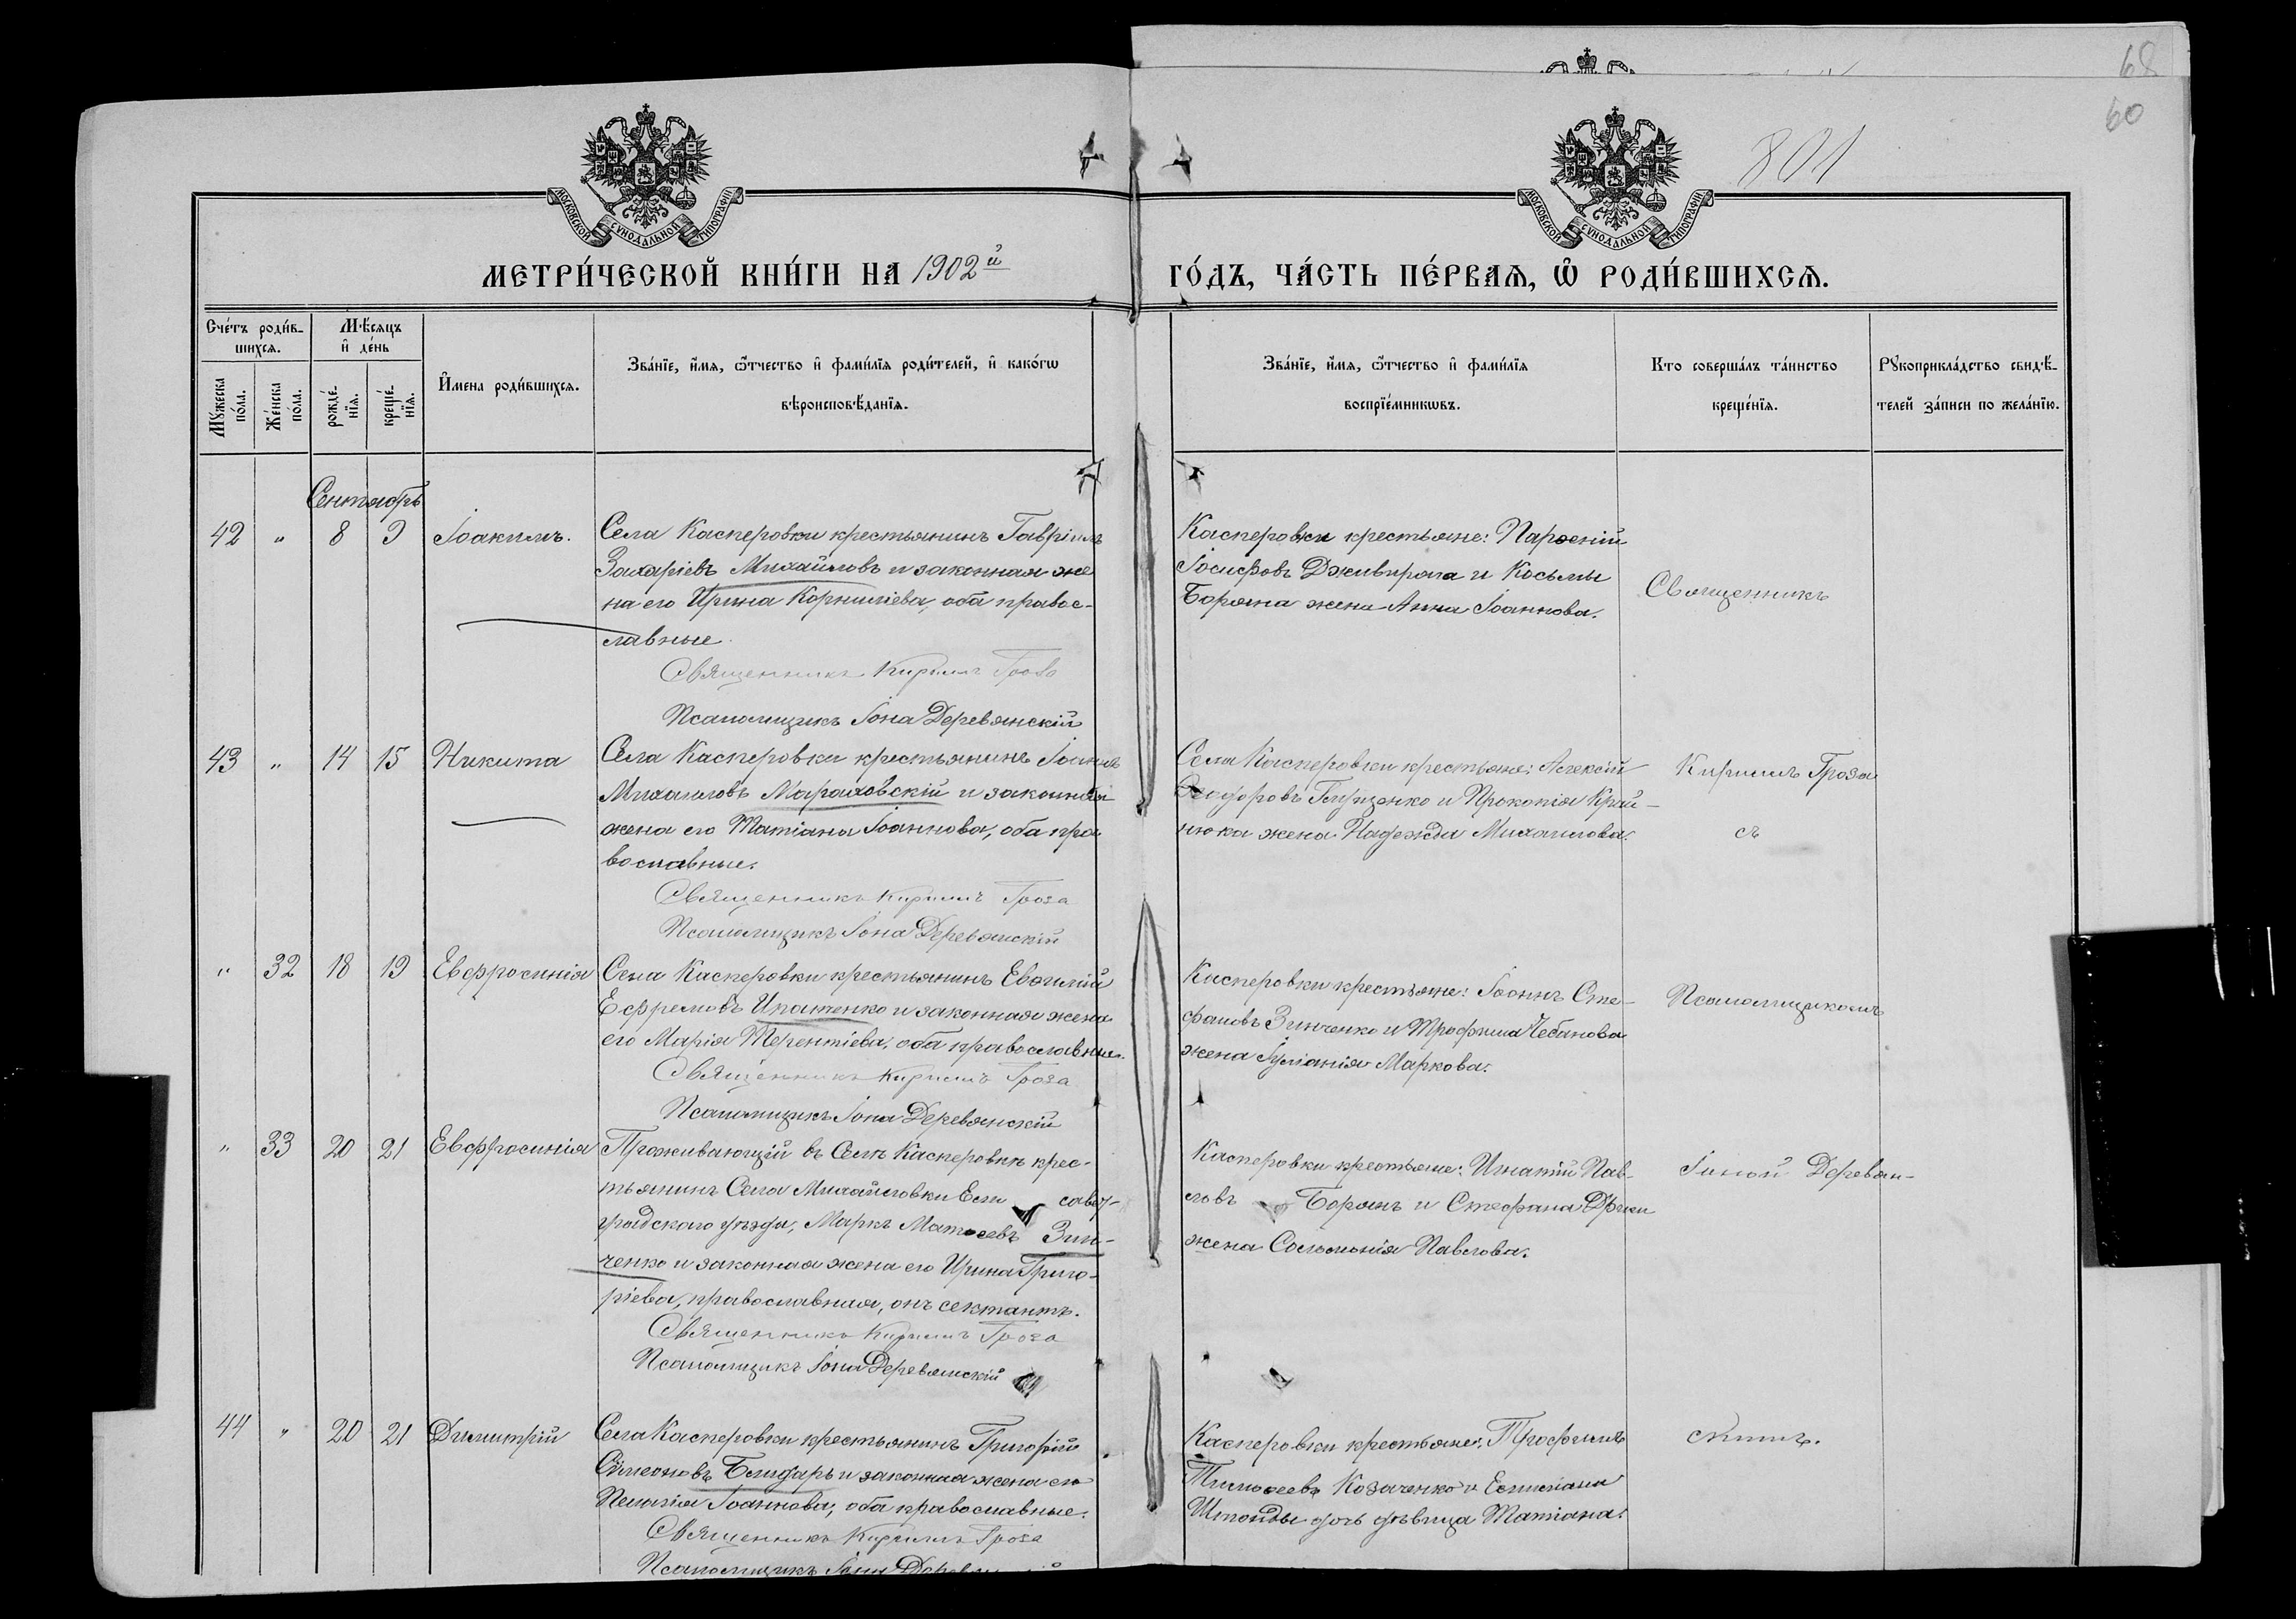 68
60
801
МОСКОВСКОЙ СѴНОДАЛЬНОЙ ТИПОГРАФІИ
МОСКОВСКОЙ СѴНОДАЛЬНОЙ ТИПОГРАФІИ
МЕТРИ́ЧЕСКОЙ КНИ́ГИ НА 1902й
ГО́ДЪ, ЧА́СТЬ ПЕ́РВАѦ, Ѽ РОДИ́ВШИХСѦ.
Сче́тъ роди́в-
шихсѧ.
Мѣ́сѧцъ
и҆ де́нь
Мꙋ́жеска по́ла.
Же́нска по́ла.
рожде́-
нїѧ.
креще́-
нїѧ.
И҆мена роди́вшихсѧ.
Зва́нїе, и҆́мѧ, ѻ҆́тчество и҆ фами́лїѧ роди́телей, и҆ како́гѡ
вѣроисповѣ́данїѧ.
Зва́нїе, и҆́мѧ, ѻ҆́тчество и҆ фами́лїѧ
воспрїе́мникѡвъ.
Кто соверша́лъ та́инство
креще́нїѧ.
Рꙋкоприкла́дство свидѣ́-
телей за́писи по жела́нїю.
Сентябрь
42 " 8 9 Іоакимъ.
Села Касперовки крестьянинъ Гавріилъ
Захаріевъ Михайловъ и законная же
на его Ирина Корниліева, оба правос-
лавные.
Священникъ Кириллъ Гроза
Псаломщикъ Іона Деревянскій
Касперовки крестьяне: Парѳеній
Іосифовъ Дживирага и Косьмы
Боряна жена Анна Іоаннова.
Священникъ
43 " 14 15 Никита
Села Касперовки крестьянинъ Іоаннъ
Михаиловъ Мараховскій и законная
жена его Татіана Іоаннова, оба пра
вославные.
Священникъ Кириллъ Гроза
Псаломщикъ Іона Деревянскій
Села Касперовки крестьяне: Алексій
Ѳеодоровъ Грищенко и Прокопія Край-
нюка жена Надежда Михаилова.
Кириллъ Гроза
съ
" 32 18 19 Евфросинія
Села Касперовки крестьянинъ Евѳимій
Ефремовъ Ипатенко и законная жена
его Марія Терентіева, оба православные.
Священникъ Кириллъ Гроза
Псаломщикъ Іона Деревянскій
Касперовки крестьяне: Іоаннъ Сте-
фановъ Зинченко и Трофима Чебанова
жена Іуліанія Маркова.
Псаломщикомъ
" 33 20 21 Евфросинія
Проживающій въ Селѣ Касперовкѣ крес-
тьянинъ Села Михайловки Ели савет-
градскаго уѣзда, Маркъ Матѳеевъ Зин-
ченко и законная жена его Ирина Григо-
ріева, православная, онъ сектантъ.
Священникъ Кириллъ Гроза
Псаломщикъ Іона Деревянскій
Касперовки крестьяне: Игнатій Пав-
ловъ Борянъ и Стефана
жена Соломонія Павлова.
Іоной Деревян-
44 " 20 21 Димитрій
Села Касперовки крестьянинъ Григорій
Симеоновъ Блидарь и законная жена его
Пелагія Іоаннова, оба православные.
Священникъ Кириллъ Гроза
Псаломщикъ Іона
Касперовки крестьяне: Трофимъ
Тимоѳеевъ Козаченко и Емиліана
дочь дѣвица Татіана.
скимъ.